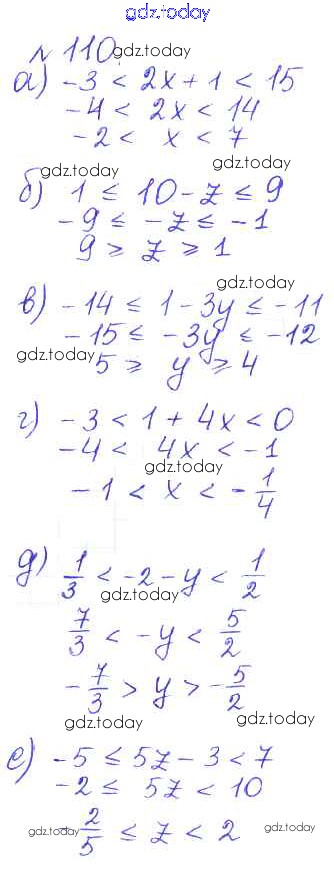 gdz.today
№ 110 gdz.today
а) -3 < 2x + 1 < 15
-4 < 2x < 14
-2 < x < 7
gdz.today gdz.today
б) 1 ≤ 10 - z ≤ 9
-9 ≤ -z ≤ -1
9 ≥ z ≥ 1
gdz.today
в) -14 ≤ 1 - 3y ≤ -11
-15 ≤ -3y ≤ -12
gdz.today 5 ≥ y ≥ 4
gdz.today
г) -3 < 1 + 4x < 0
-4 < 4x < -1
gdz.today
-1 < x < -1/4
д) 1/3 < -2 - y < 1/2
gdz.today
7/3 < -y < 5/2
-7/3 > y > -5/2
gdz.today gdz.today
е) -5 ≤ 5z - 3 < 7
-2 ≤ 5z < 10
-2/5 ≤ z < 2
gdz.today gdz.today gdz.today